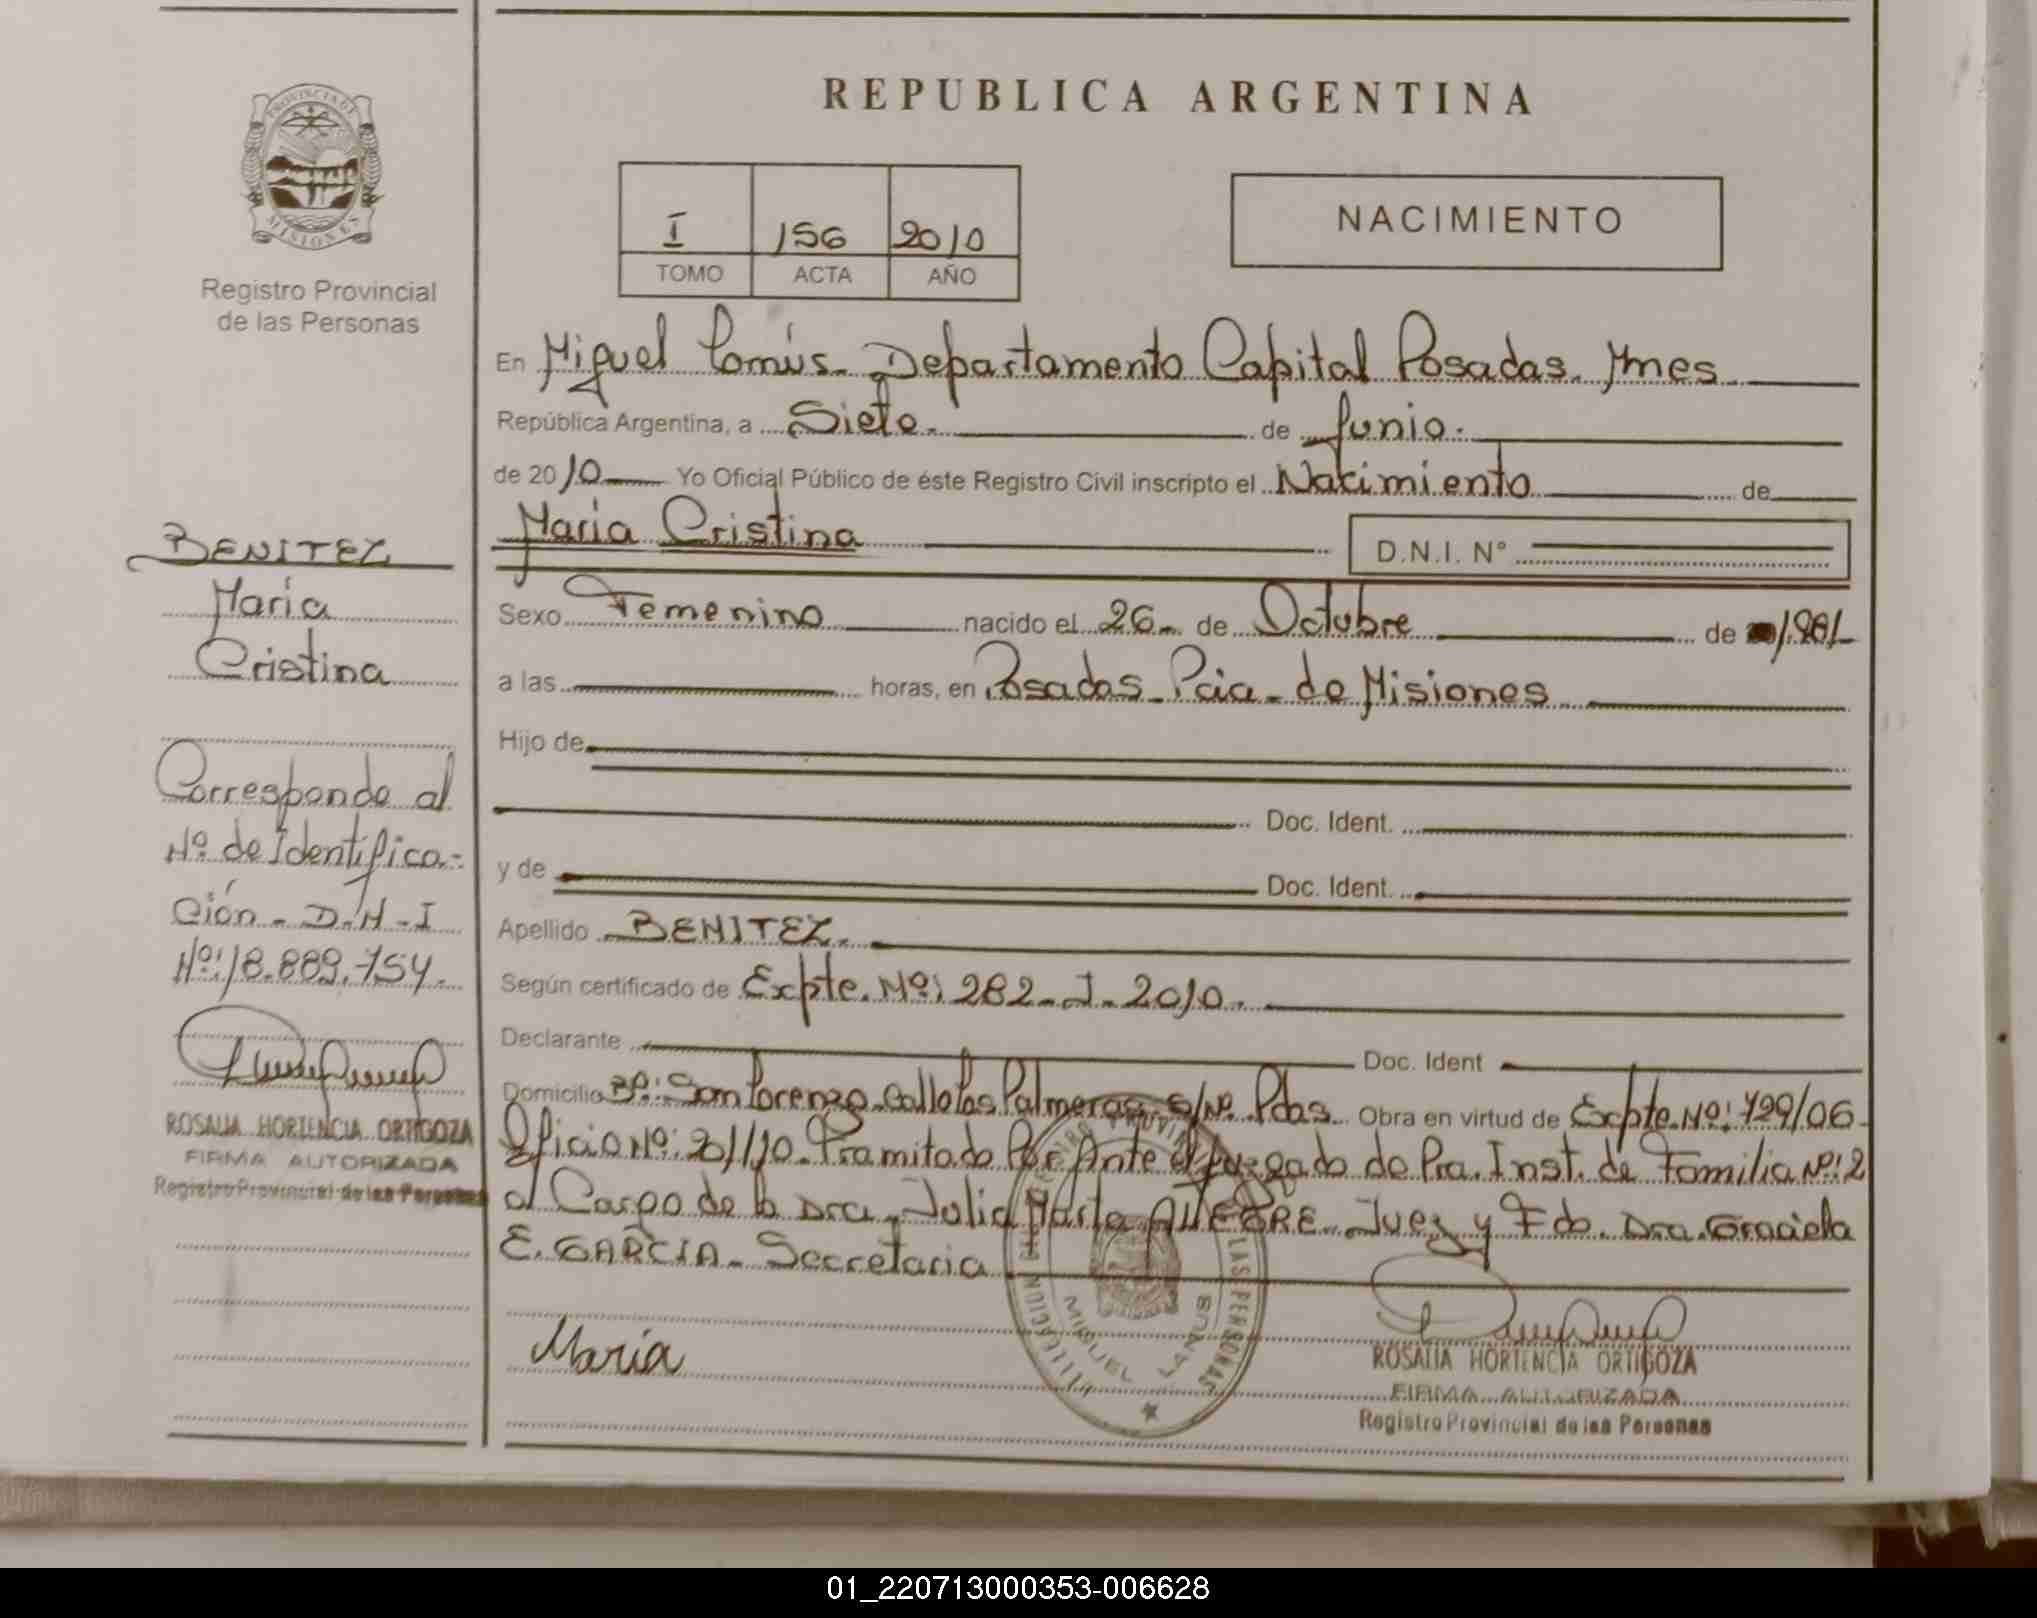 REPUBLICA ARGENTINA
PROVINCIA DE
MISIONES
Registro Provincial
de las Personas
I 156 2010
TOMO ACTA AÑO
NACIMIENTO
En Miguel Lanús. Departamento Capital Posadas. Mnes
República Argentina, a Siete. de Junio.
de 2010 Yo Oficial Público de éste Registro Civil inscripto el Nacimiento de
María Cristina D.N.I. N°
Sexo Femenino nacido el 26 de Octubre de
a las horas, en Posadas Pcia de Misiones
Hijo de
Doc. Ident.
y de Doc. Ident.
Apellido BENITEZ.
Según certificado de Expte. Nº: 282-J-2010.
Declarante Doc. Ident
Domicilio Bº: San Lorenzo Calle Las Palmeras s/Nº Pdas. Obra en virtud de Expte. Nº: 799/06
Oficio Nº: 201/10. Tramitado Por Ante el Juzgado de Pra. Inst. de Familia Nº: 2
al Cargo de la Dra. Julia Marta ALEGRE. Juez y Fdo. Dra. Graciela
E. GARCIA. Secretaria
María
MIGUEL LANUS
ROSALIA HORTENCIA ORTIGOZA
FIRMA AUTORIZADA
Registro Provincial de las Personas
BENITEZ
María
Cristina
Corresponde al
Nº de Identifica-
ción - D.N-I
Nº: 18.889.754.
ROSALIA HORTENCIA ORTIGOZA
FIRMA AUTORIZADA
Registro Provincial de las Personas
01_220713000353-006628